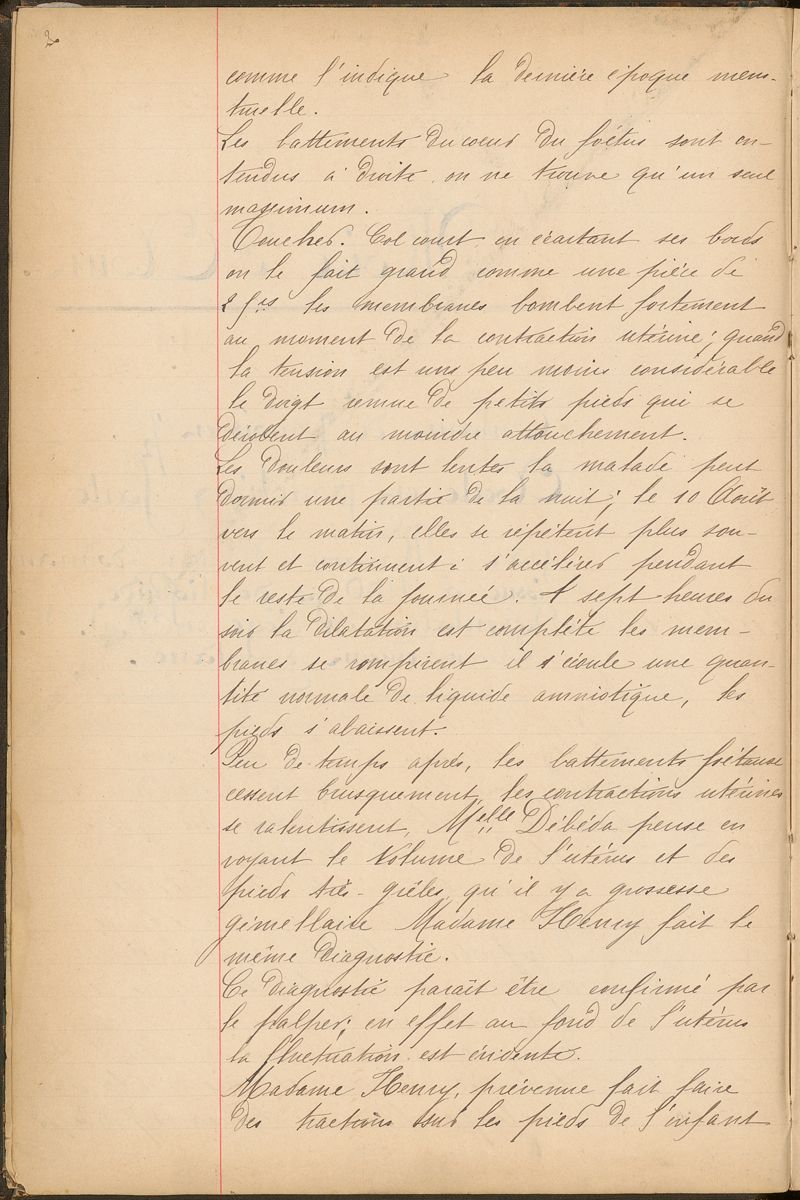 2
comme l'indique la dernière époque mens-
truelle.
Les battements du coeur du foétus sont en-
tendus à droite on ne trouve qu'un seul
maximum.
Toucher. Col court en écartant ses bords
on le fait grand comme une pièce de
2 f.cs les membranes bombent fortement
au moment de la contraction utérine; quand
la tension est un peu moins considérable
le doigt remue de petits pieds qui se
dérobent au moindre attouchement.
Les douleurs sont lentes la malade peut
dormir une partie de la nuit; le 10 Août
vers le matin, elles se répètent plus sou-
vent et continuent à s'accélérer pendant
le reste de la journée. A sept heures du
soir la dilatation est complète les mem-
branes se rompirent il s'écoule une quan-
tité normale de liquide amniotique, les
pieds s'abaissent.
Peu de temps après, les battements foétaux
cessent brusquement, les contractions utérines
se ralentissent, Melle Débéda pense en
voyant le volume de l'utérus et des
pieds très-grêles, qu'il y a grossesse
gémellaire Madame Henry fait le
même diagnostic.
Ce diagnostic paraît être confirmé par
le palper; en effet au fond de l'utérus
la fluctuation est évidente.
Madame Henry, prévenue fait faire
des tractions sur les pieds de l'enfant